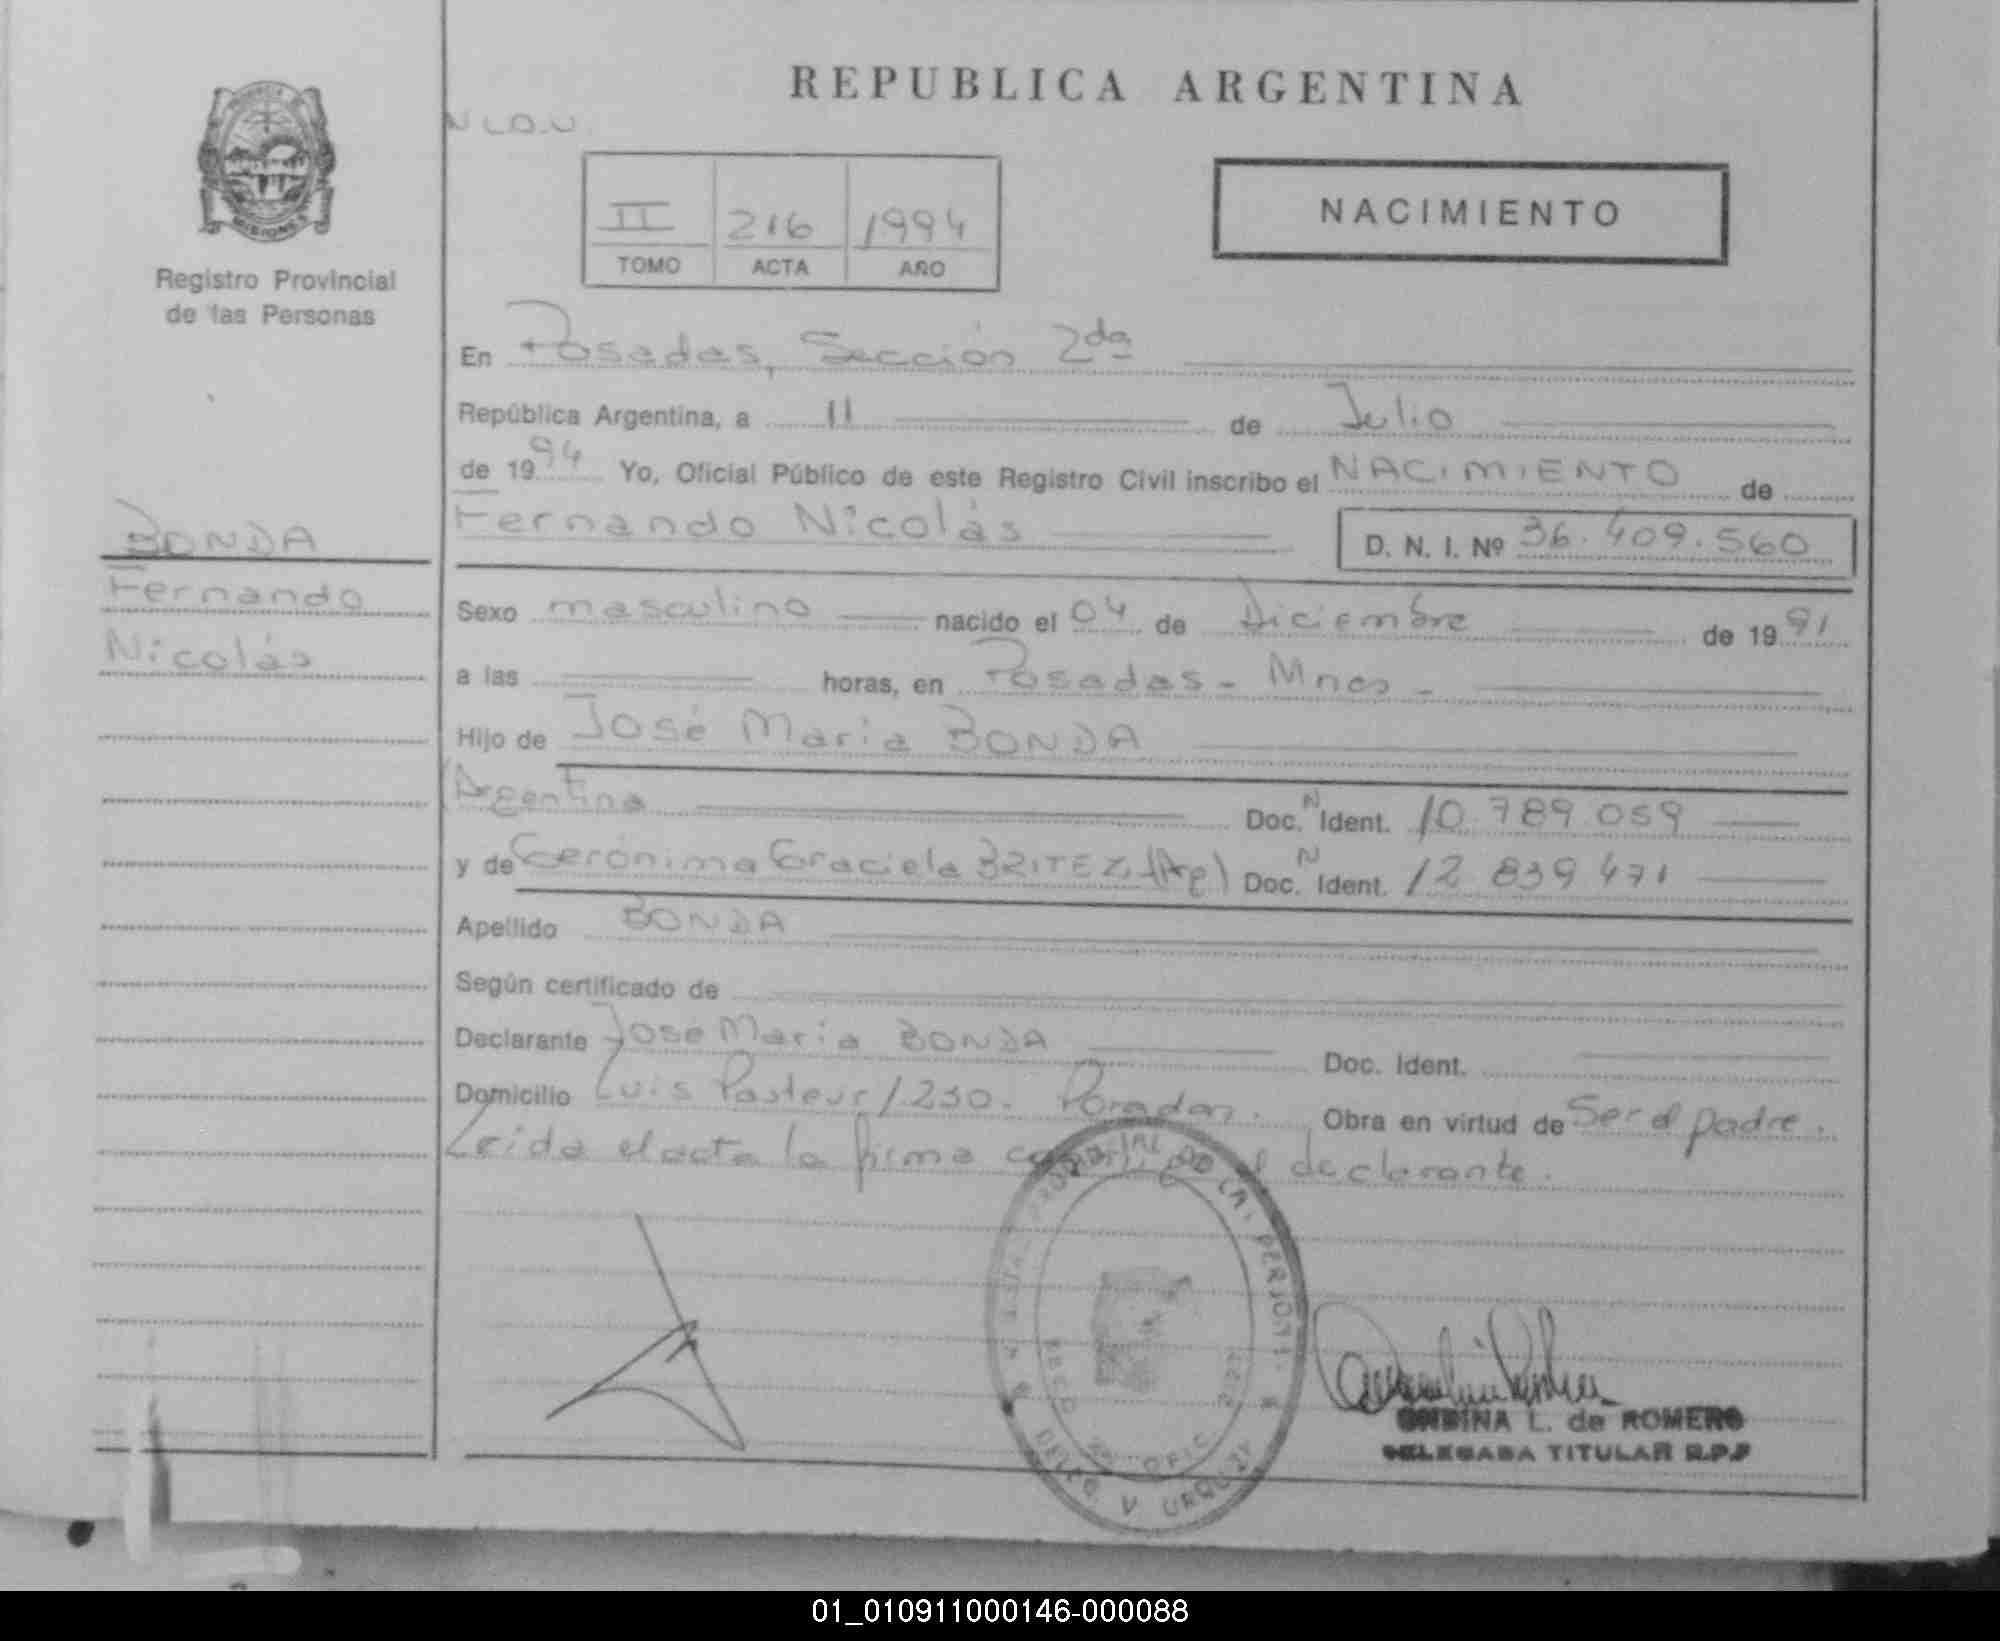 REPUBLICA ARGENTINA
PROVINCIA DE
MISIONES
Registro Provincial
de las Personas
II 216 1994
TOMO ACTA AÑO
NACIMIENTO
En Posadas, Sección 2da
República Argentina, a 11 de Julio
de 1994 Yo, Oficial Público de este Registro Civil inscribo el NACIMIENTO de
Fernando Nicolás D. N. I. Nº 36.409.560
BONDA
Fernando
Nicolás
Sexo masculino nacido el 04 de Diciembre de 1991
a las horas, en Posadas - Mnes -
Hijo de José Maria BONDA
(Argentina Doc. N Ident. 10.789.059
y de Gerónima Graciela BRITEZ (Arg) Doc. N Ident. 12 839 471
Apellido BONDA
Según certificado de
Declarante José Maria BONDA Doc. Ident.
Domicilio Luis Pasteur 1230. Posadas. Obra en virtud de Ser el padre.
Leida el acta la firma el declarante.
ONDINA L. de ROMERO
DELEGADA TITULAR R.P.P
01_010911000146-000088